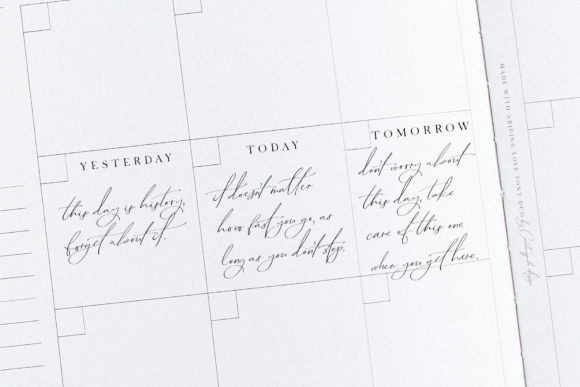 YESTERDAY
this day is history,
forget about it.
TODAY
it doesn't matter
how fast you go, as
long as you don't stop.
TOMORROW
don't worry about
this day, take
care of this one
when you get here.
MADE WITH ABIDING LOVE FONT DUO by